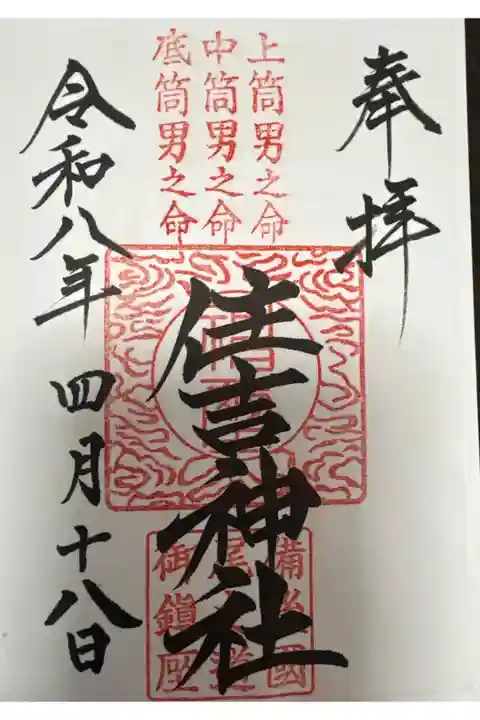 奉拝
上筒男之命
中筒男之命
底筒男之命
住吉神社
備後國
尾道
御鎮座
令和八年四月十八日